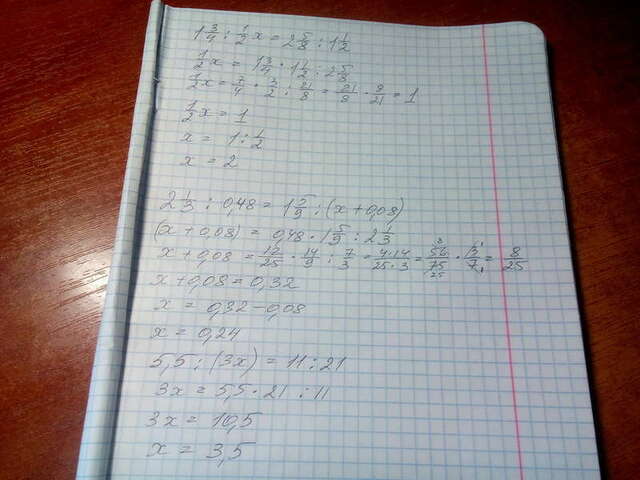 1 3/4 : 1/2 x = 2 5/8 : 1 1/2
1/2 x = 1 3/4 · 1 1/2 : 2 5/8
1/2 x = 7/4 · 3/2 : 21/8 = 21/8 · 8/21 = 1
1/2 x = 1
x = 1 : 1/2
x = 2
2 1/3 : 0,48 = 1 5/9 : (x + 0,08)
(x + 0,08) = 0,48 · 1 5/9 : 2 1/3
x + 0,08 = 12/25 · 14/9 : 7/3 = 4·14/25·3 = 56/75 · 3/7 = 8/25
x + 0,08 = 0,32
x = 0,32 - 0,08
x = 0,24
5,5 : (3x) = 11 : 21
3x = 5,5 · 21 : 11
3x = 10,5
x = 3,5